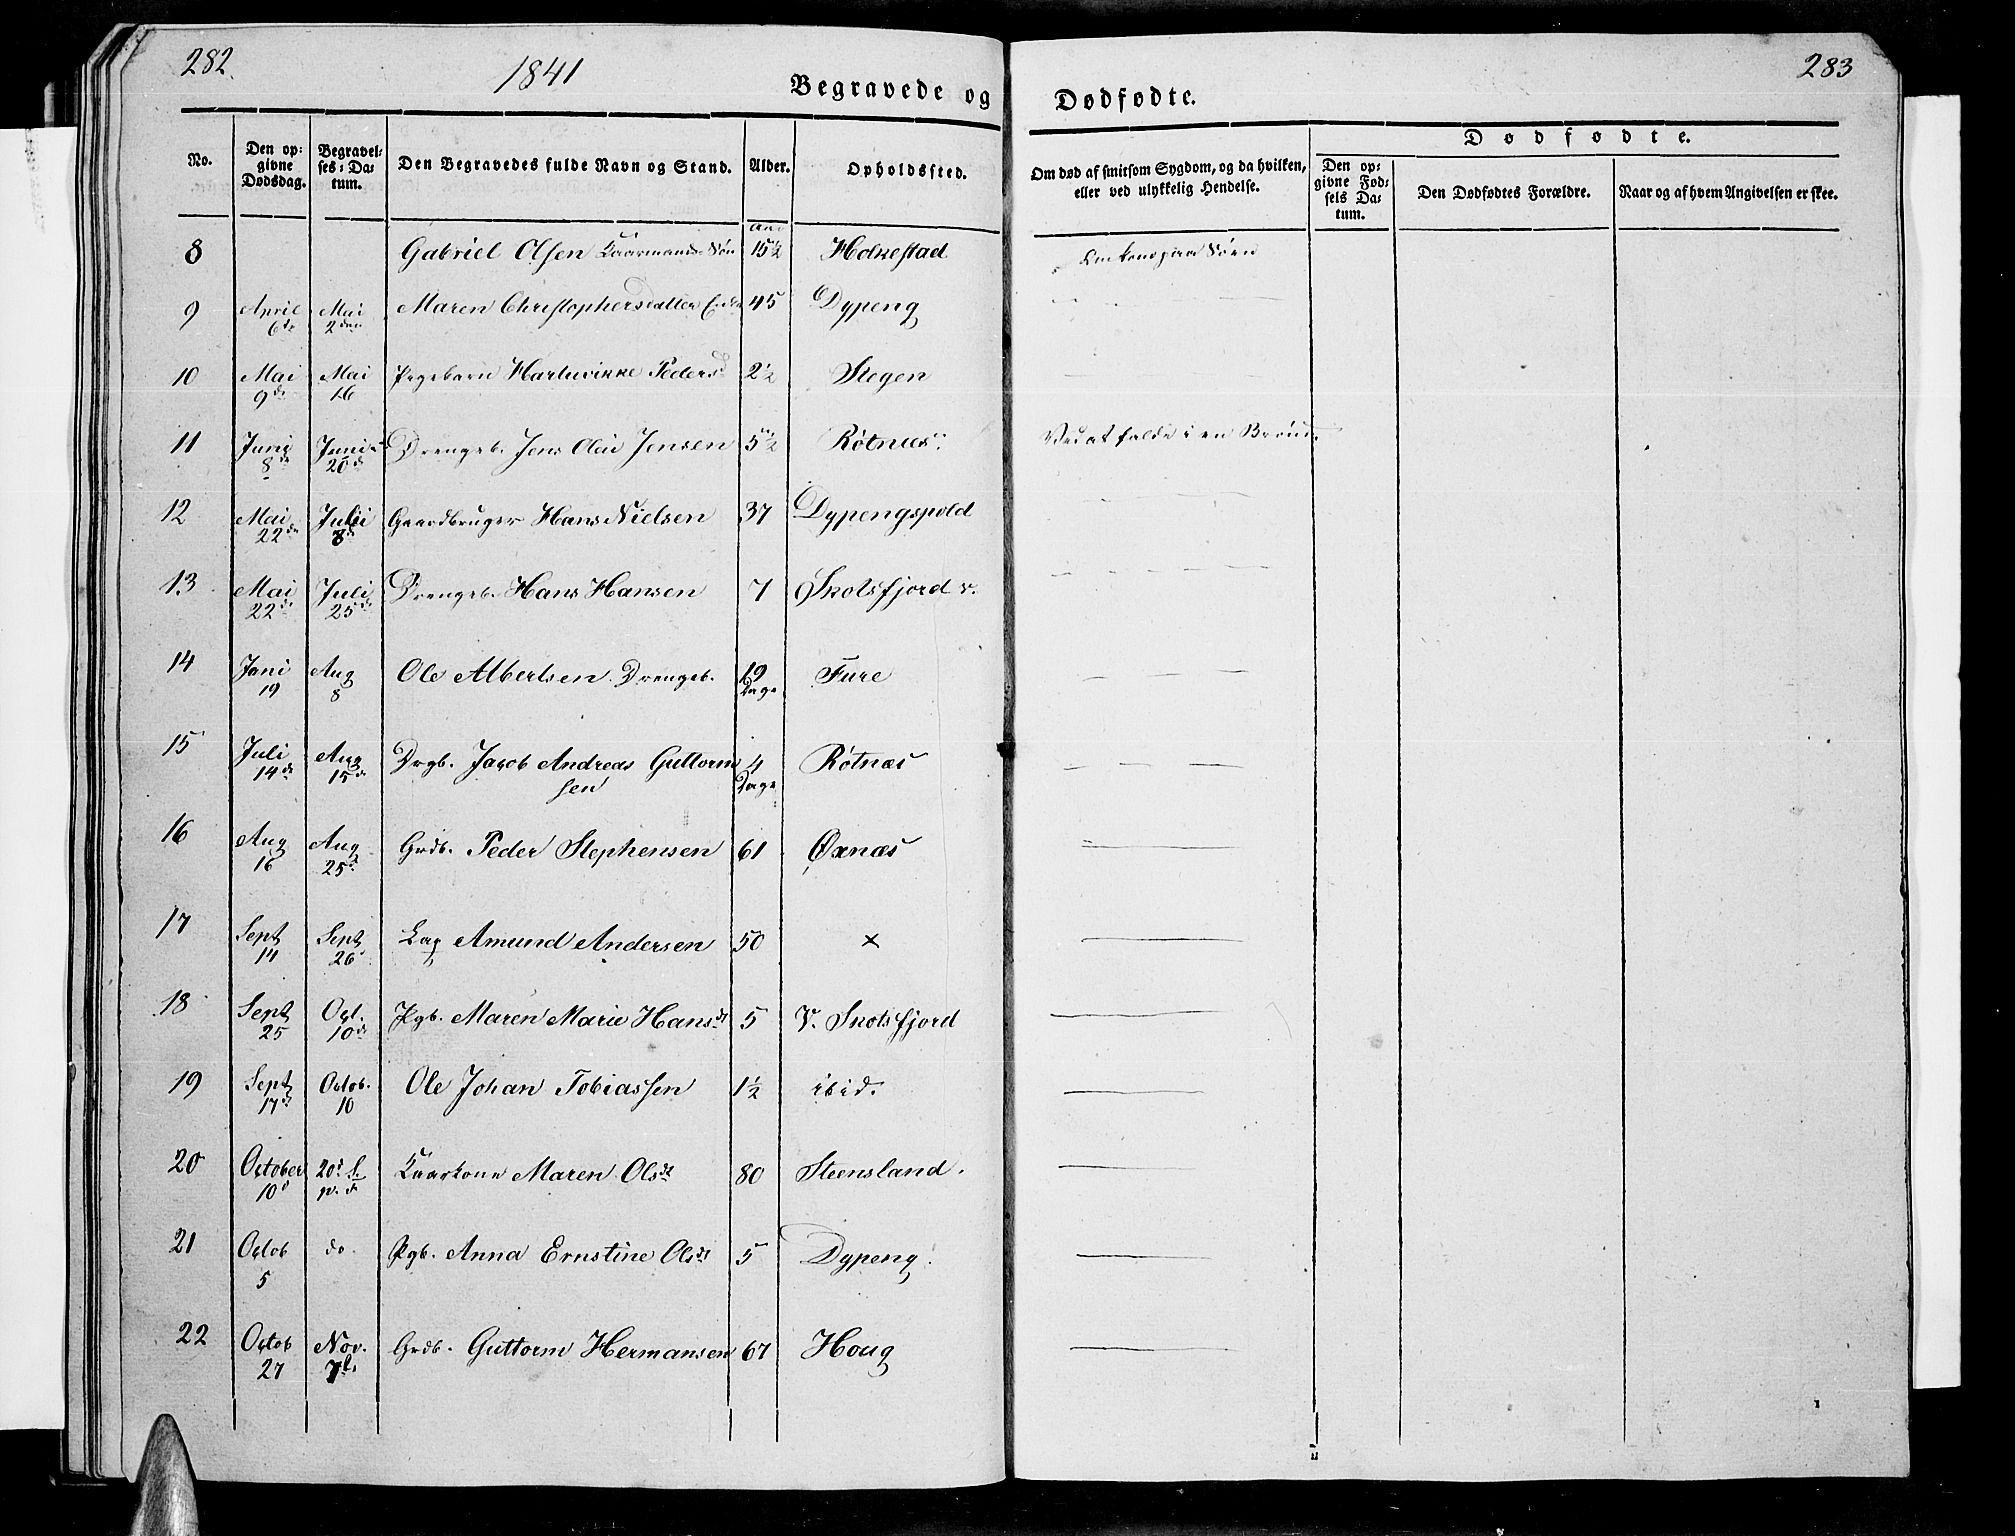 282. 1841 283
Begravede og Dødfødte.
No. Den opgivne Dødsdag. Begravelses-Datum. Den Begravedes fulde Navn og Stand. Alder. Opholdssted. Om død af smitsom Sygdom, og da hvilken, eller ved ulykkelig Hendelse. Dødfødte. Den opgivne Fødsels Datum. Den Dødfødtes Forældre. Naar og af hvem Angivelsen er skee.
8 Gabriel Olsen Kaarmands Søn 15½ Holkestad Omkom paa Søen
9 April 6te Mai 2den Maren Christophersdatter 45 Dypeng
10 Mai 9de Mai 16 Pigebarn Hartvikke Pedersd 2½ Stegen
11 Juni 8de Juni 20de Drengeb. Jens Olai Jensen 5½ Røtnæs Ved at falde i en Brønd.
12 Mai 22de Julii 8de Gaardbruger Hans Nielsen 37 Dypengspold
13 Mai 22de Juli 25de Drengeb. Hans Hansen 7 Skotsfjord v.
14 Juni 19 Aug 8 Ole Albertsen Drengeb. 19 Dage Fure
15 Juli 14de Aug 15de Drgb. Jacob Andreas Guttorm
sen 4 Dage Røtnæs
16 Aug 16 Aug 25de Grdb. Peder Stephensen 61 Øxnæs
17 Sept 14 Sept 26 Amund Andersen 50 ×
18 Sept 25 Oct. 10de Pgb. Maren Marie Hansdt 5 V. Skotsfjord
19 Sept 17de Octob. 10 Ole Johan Tobiassen 1½ ibid.
20 October 10d 20d S. p. d Kaarkone Maren Olsdt 80 Steensland.
21 Octob 5 do. Pgb. Anna Ernstine Olsdt 5 Dypeng.
22 Octob 27 Nov. 7de Grdb. Guttorm Hermansen 67 Houg